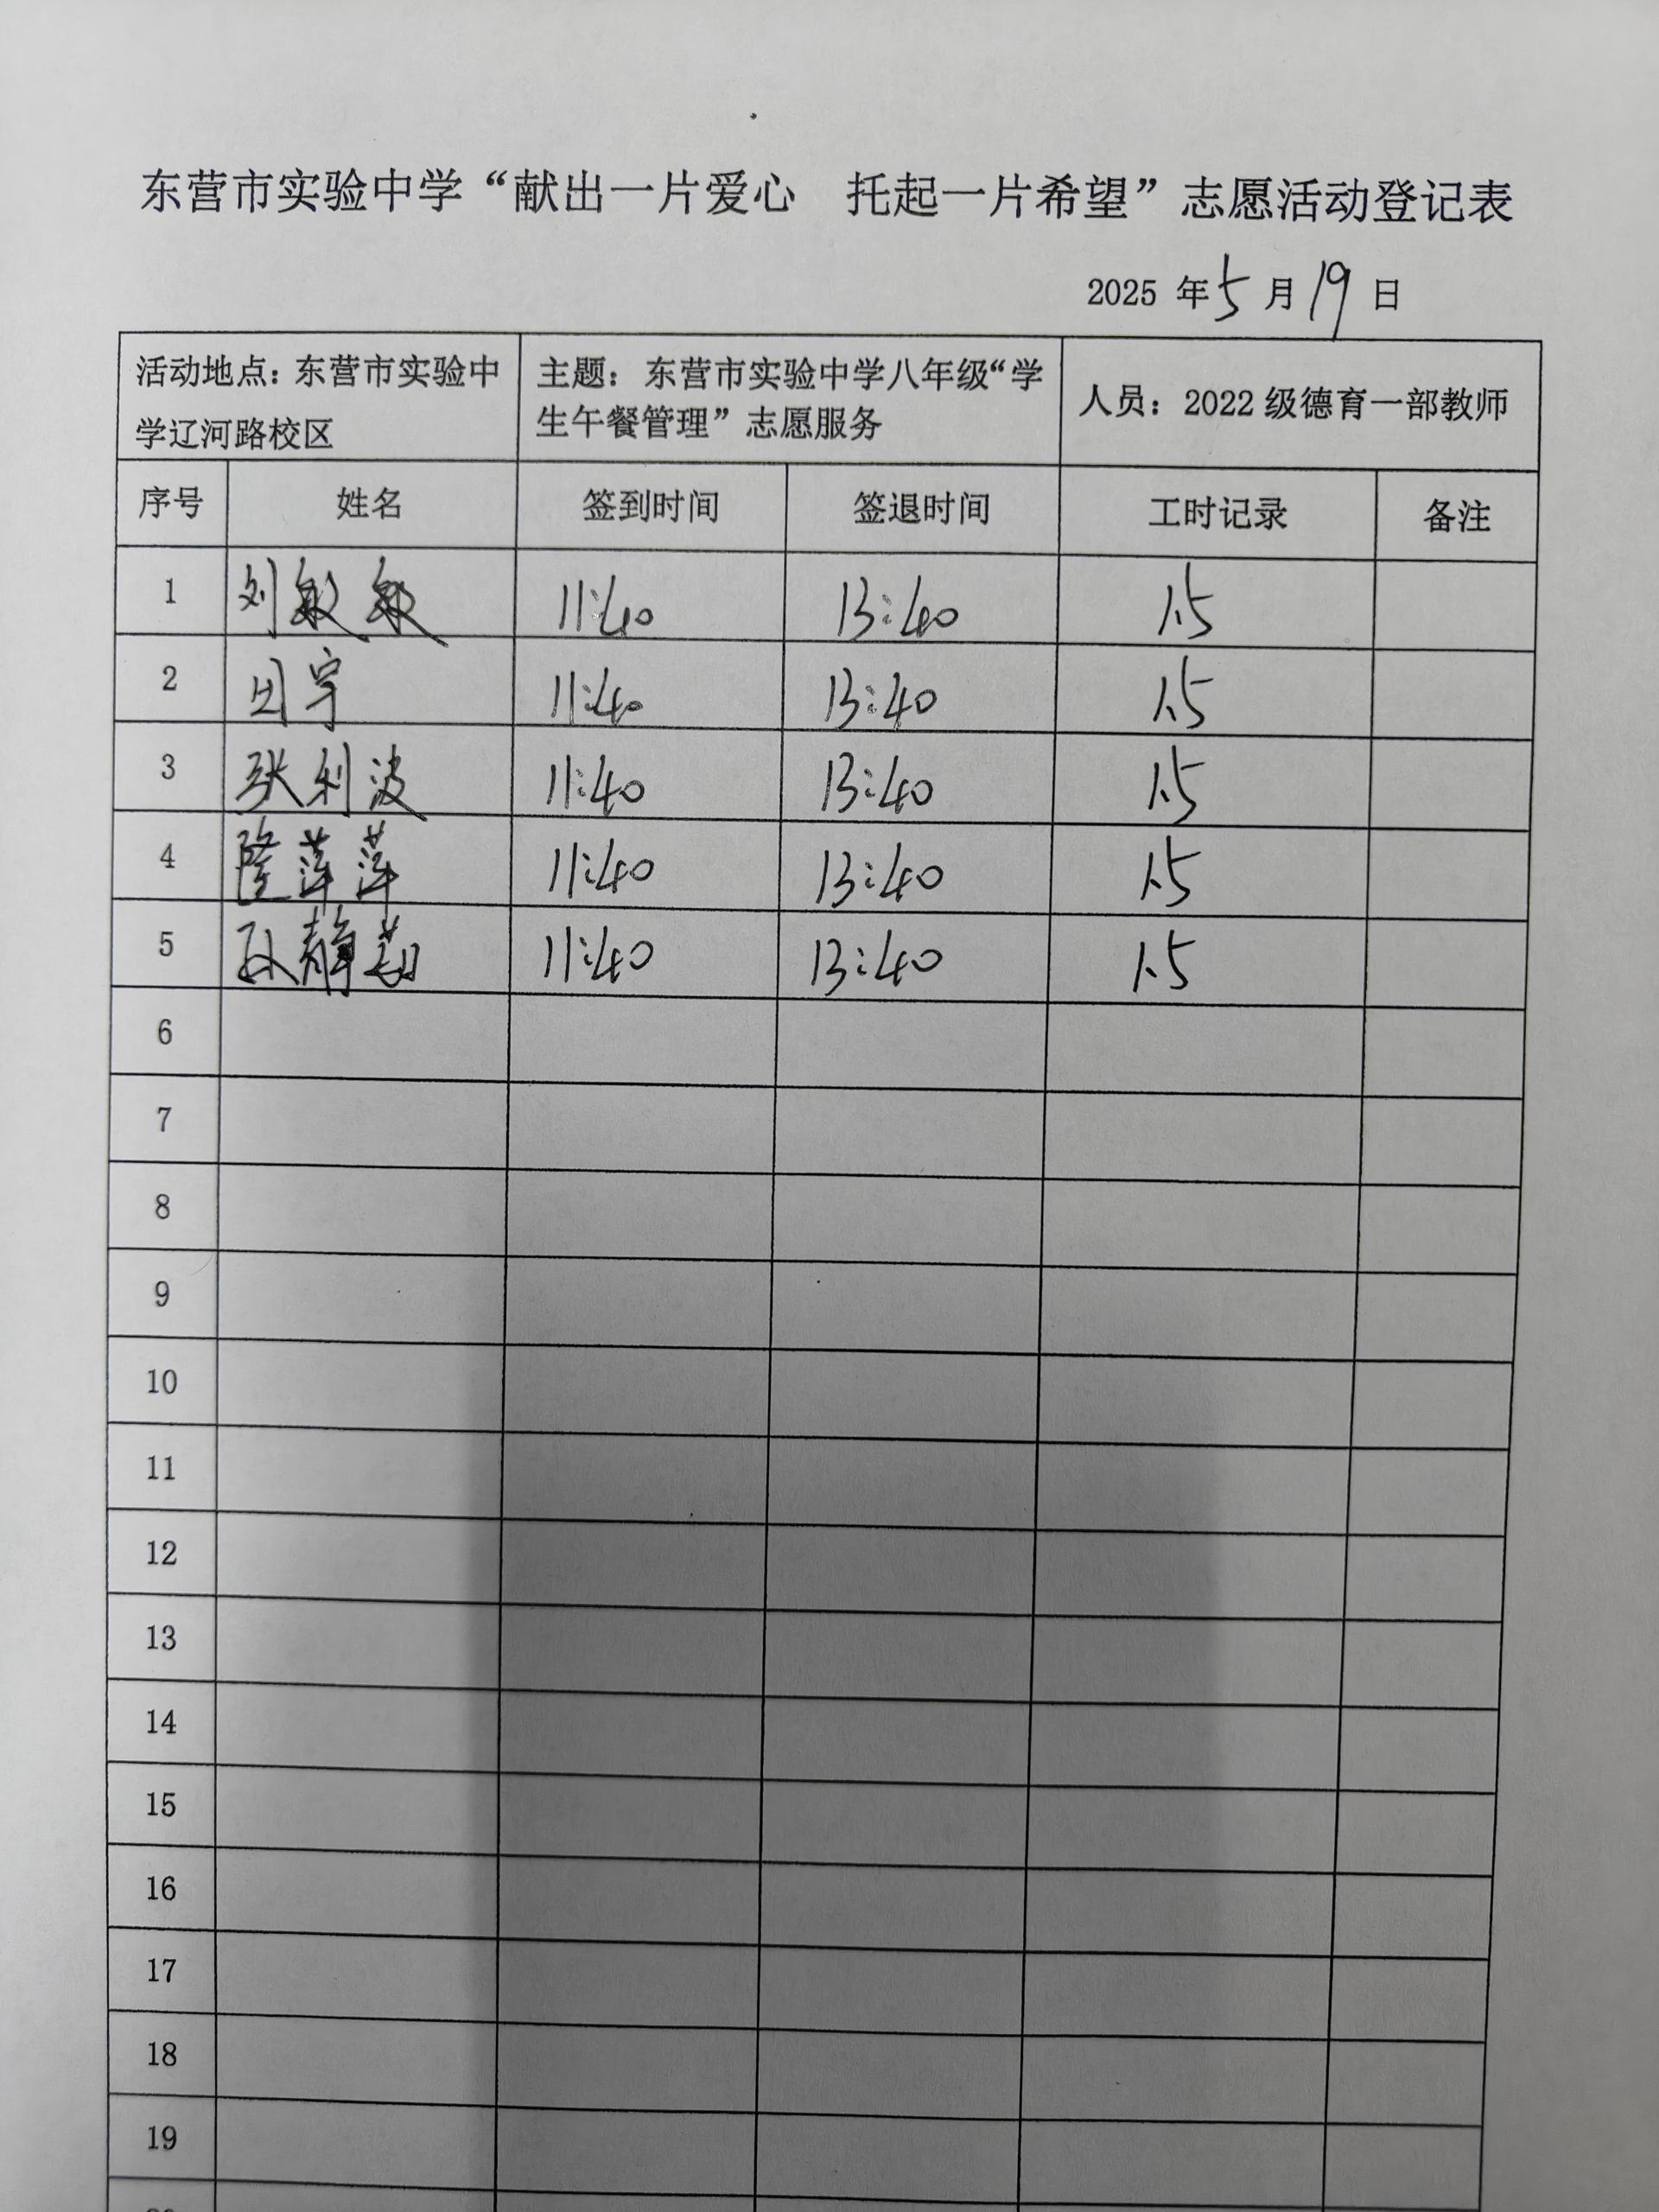 东营市实验中学“献出一片爱心　托起一片希望”志愿活动登记表
2025 年 5 月 19 日
活动地点：东营市实验中学辽河路校区 主题：东营市实验中学八年级“学生午餐管理”志愿服务 人员：2022 级德育一部教师
序号 姓名 签到时间 签退时间 工时记录 备注
1 刘敏敏 11:40 13:40 1.5
2 田宇 11:40 13:40 1.5
3 张利波 11:40 13:40 1.5
4 隆萍萍 11:40 13:40 1.5
5 孙静茹 11:40 13:40 1.5
6
7
8
9
10
11
12
13
14
15
16
17
18
19